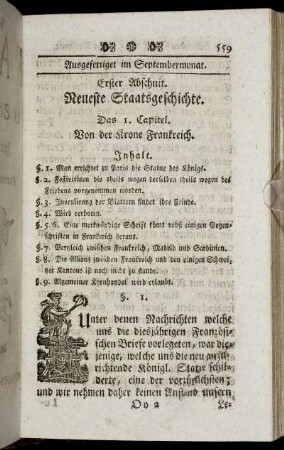 559
Ausgefertiget im Septembermonat.
Erster Abschnit.
Neueste Staatsgeschichte.
Das 1. Capitel.
Von der Krone Frankreich.
Inhalt.
§. 1. Man errichtet zu Paris die Statue des Königs.
§. 2. Festivitäten die theils wegen derselben theils wegen des
Friedens vorgenommen worden.
§. 3. Inoculirung der Blattern findet ihre Feinde.
§. 4. Wird verboten.
§. 5. 6. Eine merkwürdige Schrift kömt nebst einigen Gegen-
schriften in Frankreich heraus.
§. 7. Vergleich zwischen Frankreich, Madrid und Sardinien.
§. 8. Die Allianz zwischen Frankreich und den einigen Schwei-
zer Cantons ist noch nicht zu stande.
§. 9. Allgemeiner Kornhandel wird erlaubt.
§. 1.
Unter denen Nachrichten welche
uns die diesjährigen Französi-
schen Briefe vorlegeten, war die-
jenige, welche uns die neu aufzu-
richtende Königl. Statue schil-
derte, eine der vorzüglichsten;
und wir nehmen daher keinen Anstand unsern
Oo 2
Le-